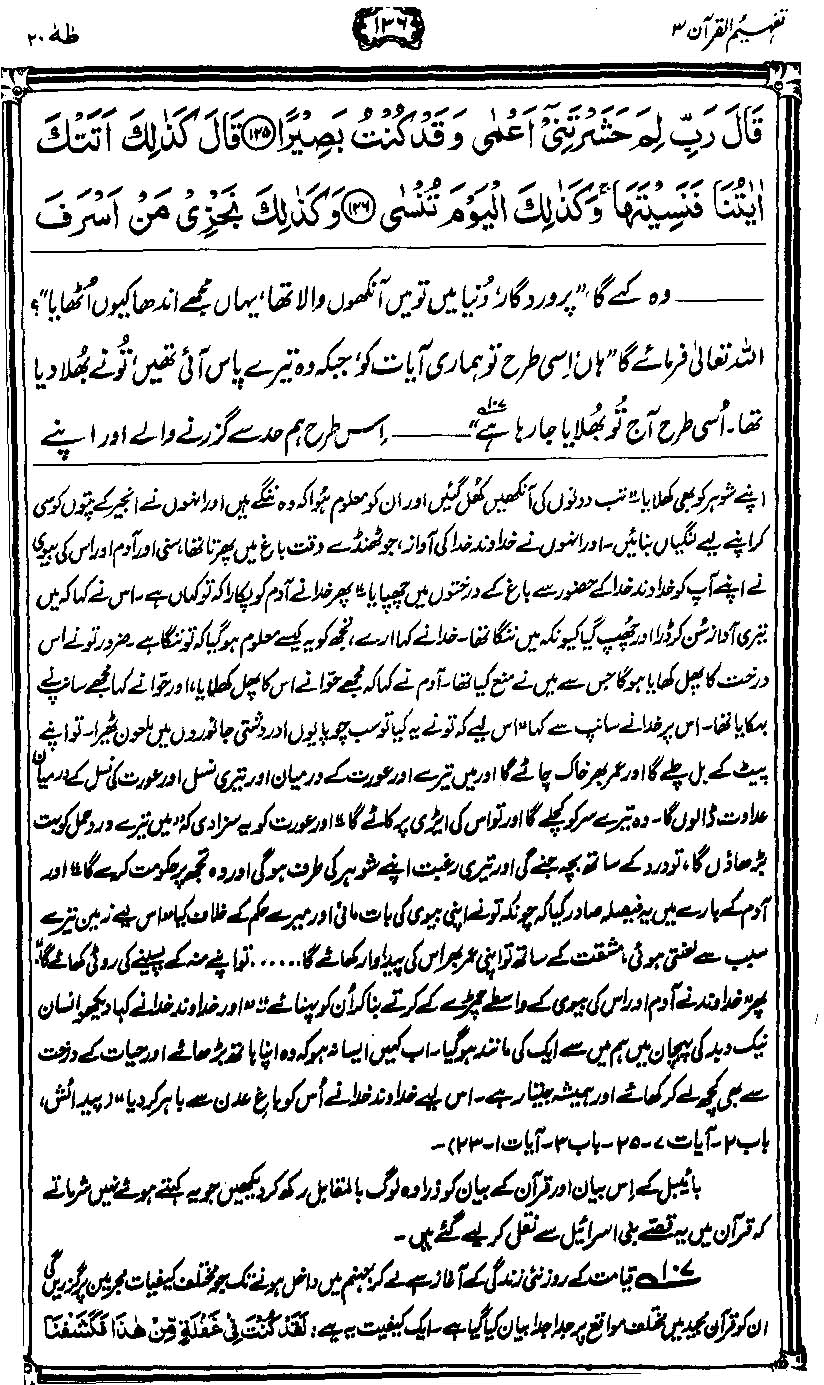 تفہیم القرآن ۳
۱۳۶
طٰہٰ ۲۰
قَالَ رَبِّ لِمَ حَشَرْتَنِیْٓ اَعْمٰی وَقَدْ كُنْتُ بَصِیْرًا ﴿۱۲۵﴾ قَالَ كَذٰلِكَ اَتَتْكَ
اٰیٰتُنَا فَنَسِیْتَهَا ۚ وَكَذٰلِكَ الْیَوْمَ تُنْسٰی ﴿۱۲۶﴾ وَكَذٰلِكَ نَجْزِیْ مَنْ اَسْرَفَ
——— وہ کہے گا، ”پروردگار، دُنیا میں تو میں آنکھوں والا تھا، یہاں مجھے اندھا کیوں اُٹھایا“؟
اللہ تعالیٰ فرمائے گا ”ہاں، اِسی طرح تو ہماری آیات کو، جبکہ وہ تیرے پاس آئی تھیں، تُو نے بھُلا دیا
تھا۔ اُسی طرح آج تُو بھُلایا جا رہا ہے۱۰۷“۔ ——— اِس طرح ہم حد سے گزرنے والے اور اپنے
اپنے شوہر کو بھی کھلایا“ تب دونوں کی آنکھیں کھُل گئیں اور ان کو معلوم ہُوا کہ وہ ننگے ہیں اور انہوں نے انجیر کے پتوں کو سی
کر اپنے لیے لنگیاں بنائیں۔ اور انہوں نے خداوند خدا کی آواز، جو ٹھنڈے وقت باغ میں پھرتا تھا، سنی اور آدم اور اس کی بیوی
نے اپنے آپ کو خداوند خدا کے حضور سے باغ کے درختوں میں چھپایا“ پھر خدا نے آدم کو پکارا کہ تو کہاں ہے۔ اس نے کہا کہ میں
تیری آواز سُن کر ڈرا اور چھپ گیا کیونکہ میں ننگا تھا۔ خدا نے کہا ارے، تجھ کو یہ کیسے معلوم ہو گیا کہ تو ننگا ہے۔ ضرور تو نے اس
درخت کا پھل کھایا ہوگا جس سے میں نے منع کیا تھا۔ آدم نے کہا کہ مجھے حوّا نے اس کا پھل کھلایا، اور حوّا نے کہا مجھے سانپ نے
بہکایا تھا۔ اس پر خدا نے سانپ سے کہا ”اس لیے کہ تو نے یہ کیا تو سب چوپایوں اور دشتی جانوروں میں ملعون ٹھیرا۔ تو اپنے
پیٹ کے بل چلے گا اور عمر بھر خاک چاٹے گا اور میں تیرے اور عورت کے درمیان اور تیری نسل اور عورت کی نسل کے درمیان
عداوت ڈالوں گا۔ وہ تیرے سر کو کچلے گا اور تو اس کی ایڑی پر کاٹے گا“ اور عورت کو یہ سزا دی کہ ”میں تیرے دردِ حمل کو بہت
بڑھاؤں گا، تو درد کے ساتھ بچہ جنے گی اور تیری رغبت اپنے شوہر کی طرف ہوگی اور وہ تجھ پر حکومت کرے گا“ اور
آدم کے بارے میں یہ فیصلہ صادر کیا کہ چونکہ تو نے اپنی بیوی کی بات مانی اور میرے حکم کے خلاف کیا ”اس لیے زمین تیرے
سبب سے لعنتی ہوئی، مشقت کے ساتھ تو اپنی عمر بھر اس کی پیداوار کھائے گا ...... تو اپنے منہ کے پسینے کی روٹی کھائے گا“
پھر ”خداوند نے آدم اور اس کی بیوی کے واسطے چمڑے کے کرتے بنا کر اُن کو پہنائے“۔ ”اور خداوند خدا نے کہا دیکھو انسان
نیک و بد کی پہچان میں ہم میں سے ایک کی مانند ہو گیا۔ اب کہیں ایسا نہ ہو کہ وہ اپنا ہاتھ بڑھائے اور حیات کے درخت
سے بھی کچھ لے کر کھائے اور ہمیشہ جیتا رہے۔ اس لیے خداوند خدا نے اُس کو باغِ عدن سے باہر کر دیا“ (پیدائش،
باب ۲۔ آیات ۷۔۲۵۔ باب ۳۔ آیات ۱۔۲۳)۔
بائیبل کے اِس بیان اور قرآن کے بیان کو ذرا وہ لوگ بالمقابل رکھ کر دیکھیں جو یہ کہتے ہوئے نہیں شرماتے
کہ قرآن میں یہ قصّے بنی اسرائیل سے نقل کر لیے گئے ہیں۔
۱۰۷ قیامت کے روز نئی زندگی کے آغاز سے لے کر جہنم میں داخل ہونے تک جو مختلف کیفیات مجرمین پر گزریں گی
ان کو قرآن مجید میں مختلف مواقع پر جدا جدا بیان کیا گیا ہے۔ ایک کیفیت یہ ہے: لَقَدْ كُنْتَ فِیْ غَفْلَةٍ مِّنْ هٰذَا فَكَشَفْنَا